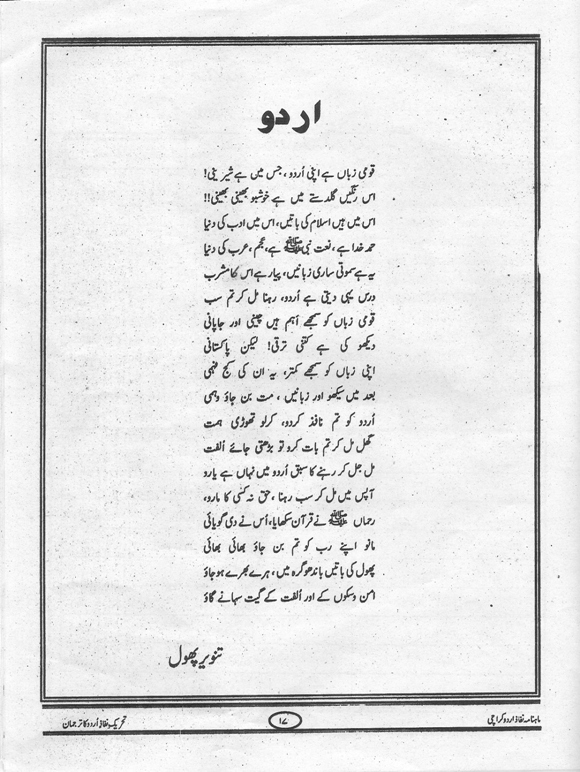 اردو
قومی زباں ہے اپنی اُردو، جس میں ہے شیرینی!
اس رنگیں گلدستے میں ہے خوشبو بھینی بھینی!!
اس میں ہیں اسلام کی باتیں، اس میں ادب کی دنیا
حمد خدا ہے، نعت نبی ﷺ ہے، عجم، عرب کی دنیا
یہ ہے سموتی ساری زبانیں، پیار ہے اس کا مشرب
درس یہی دیتی ہے اُردو، رہنا مل کر تم سب
قومی زباں کو سمجھے اہم ہیں چینی اور جاپانی
دیکھو کی ہے کتنی ترقی! لیکن پاکستانی
اپنی زباں کو سمجھے کمتر، یہ ان کی کج فہمی
بعد میں سیکھو اور زبانیں، مت بن جاؤ وہمی
اُردو کو تم نافذ کردو، کرلو تھوڑی ہمت
گھل مل کر تم بات کرو تو بڑھتی جائے اُلفت
مل جل کر رہنے کا سبق اُردو میں نہاں ہے یارو
آپس میں مل کر سب رہنا، حق نہ کسی کا مارو،
رحماں ﷺ نے قرآن سکھایا، اُس نے دی گویائی
مانو اپنے رب کو تم بن جاؤ بھائی بھائی
پھول کی باتیں باندھو گرہ میں، ہرے بھرے ہو جاؤ
امن و سکوں کے اور اُلفت کے گیت سہانے گاؤ
تنویر پھول
ماہنامہ نفاذ اردو کراچی
۱۷
تحریک نفاذ اُردو کا ترجمان